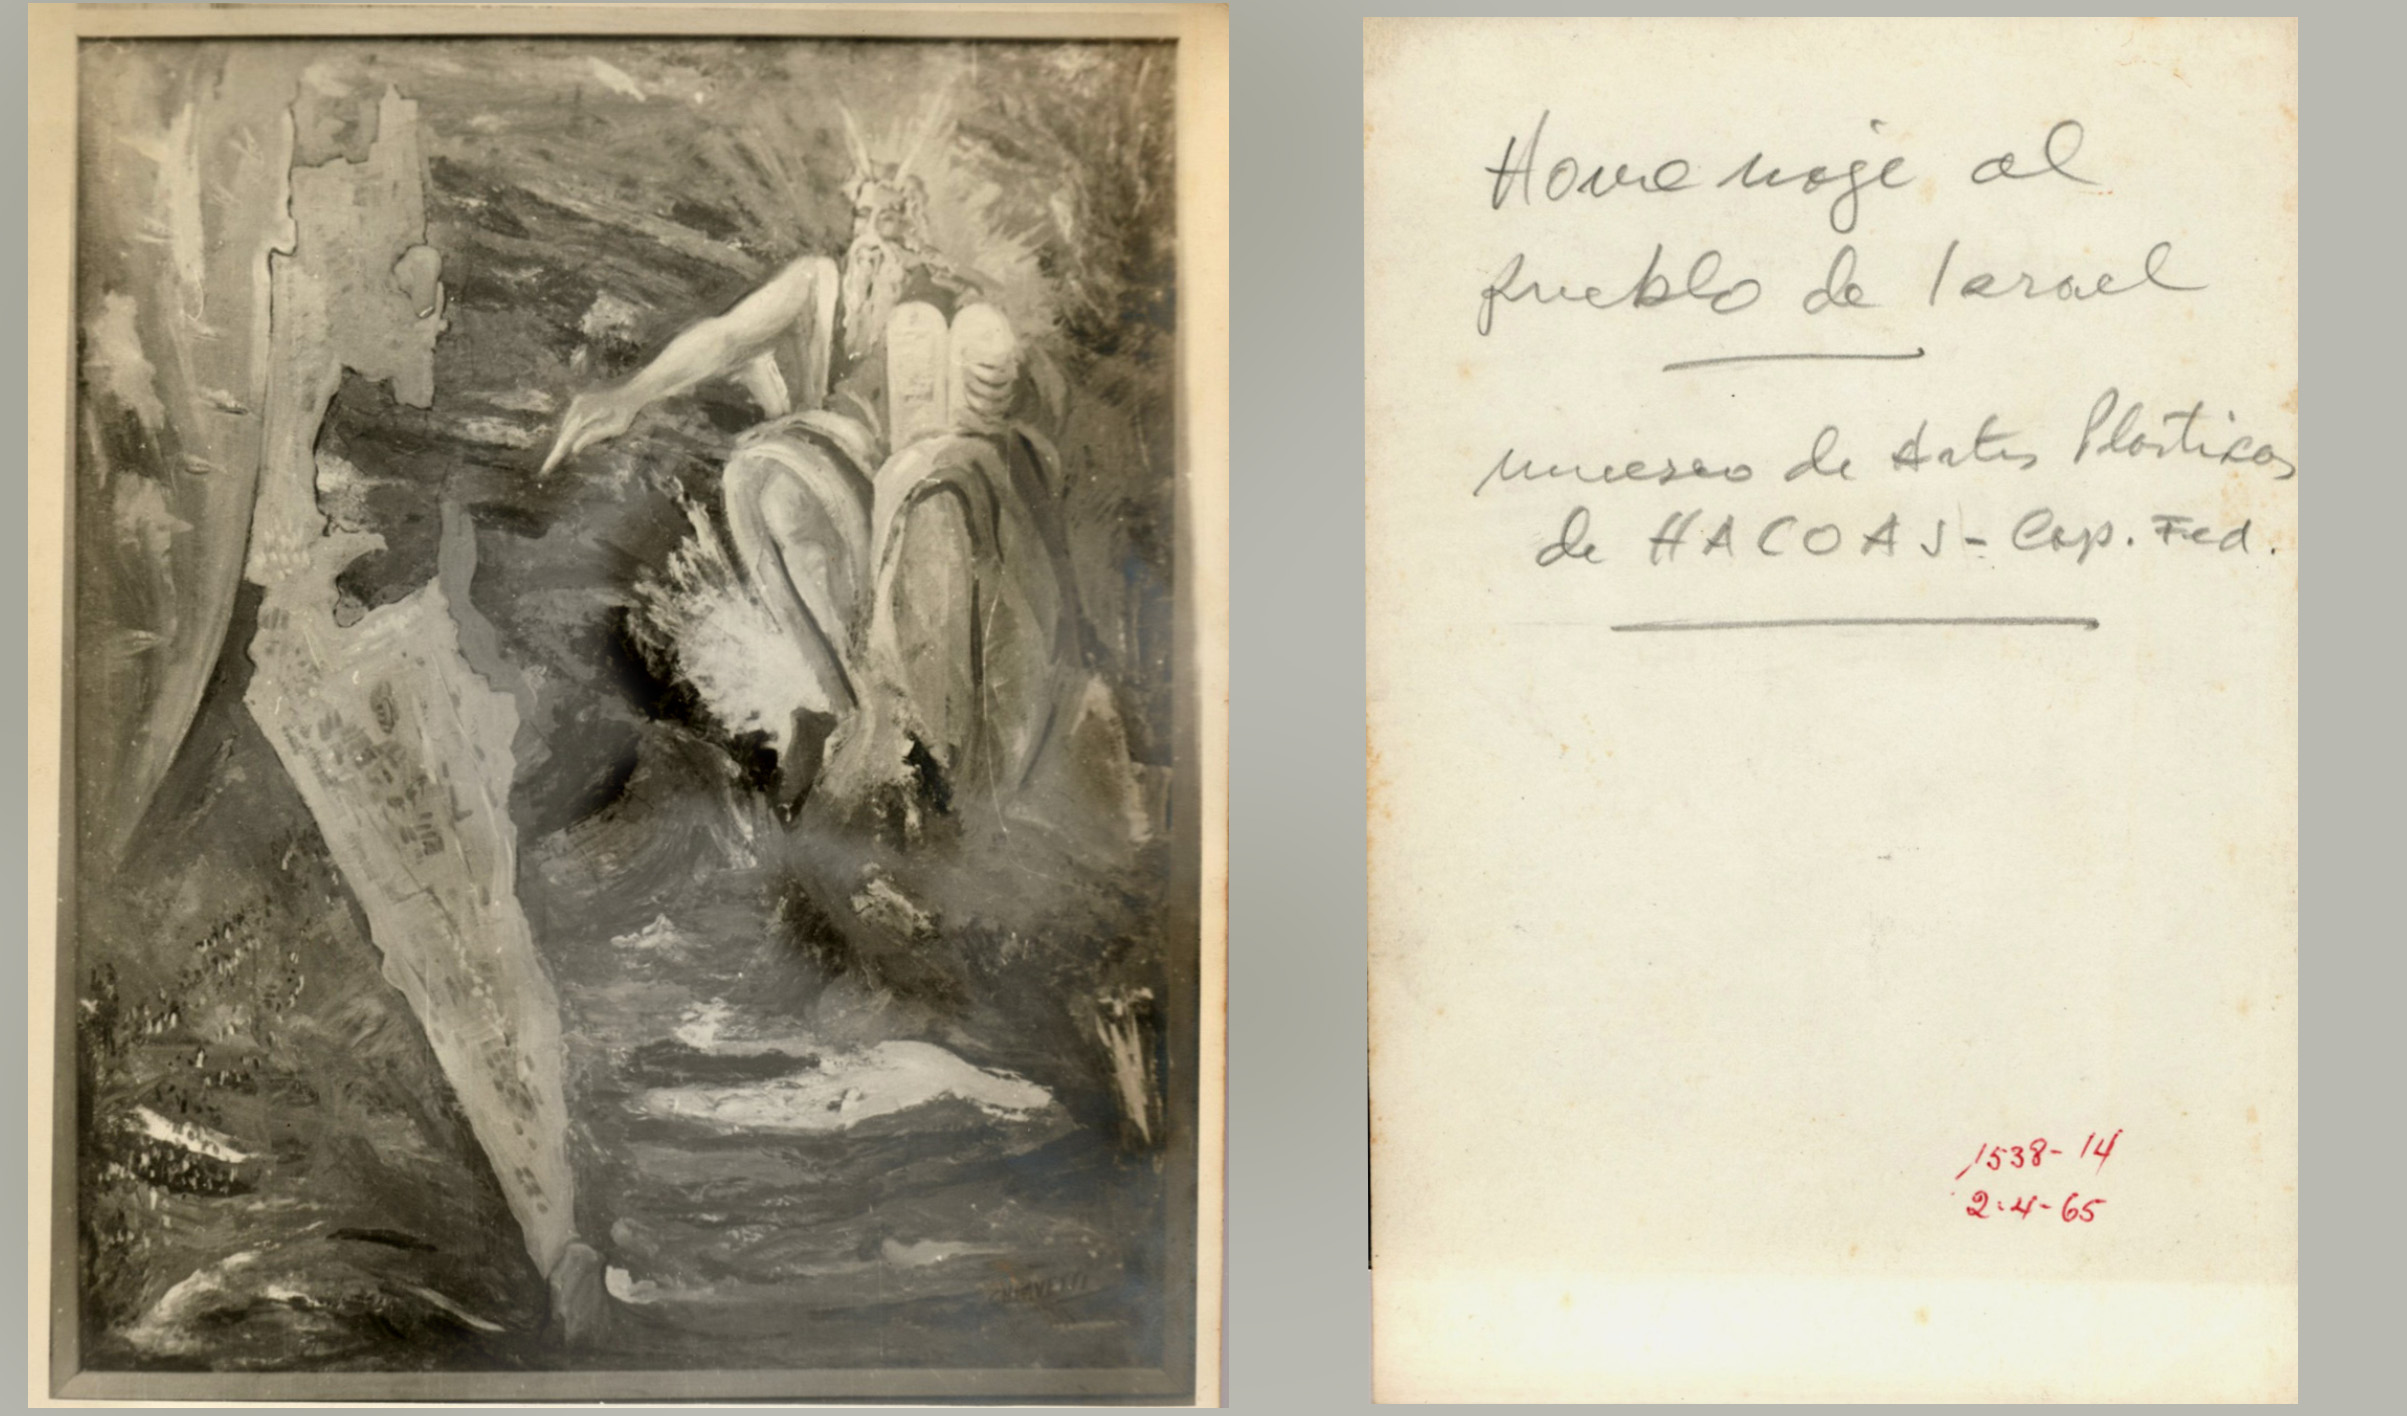 Homenaje al
pueblo de Israel
museo de Artes Plasticas
de HACOAJ - Cap. Fed.
1538-14
2-4-65